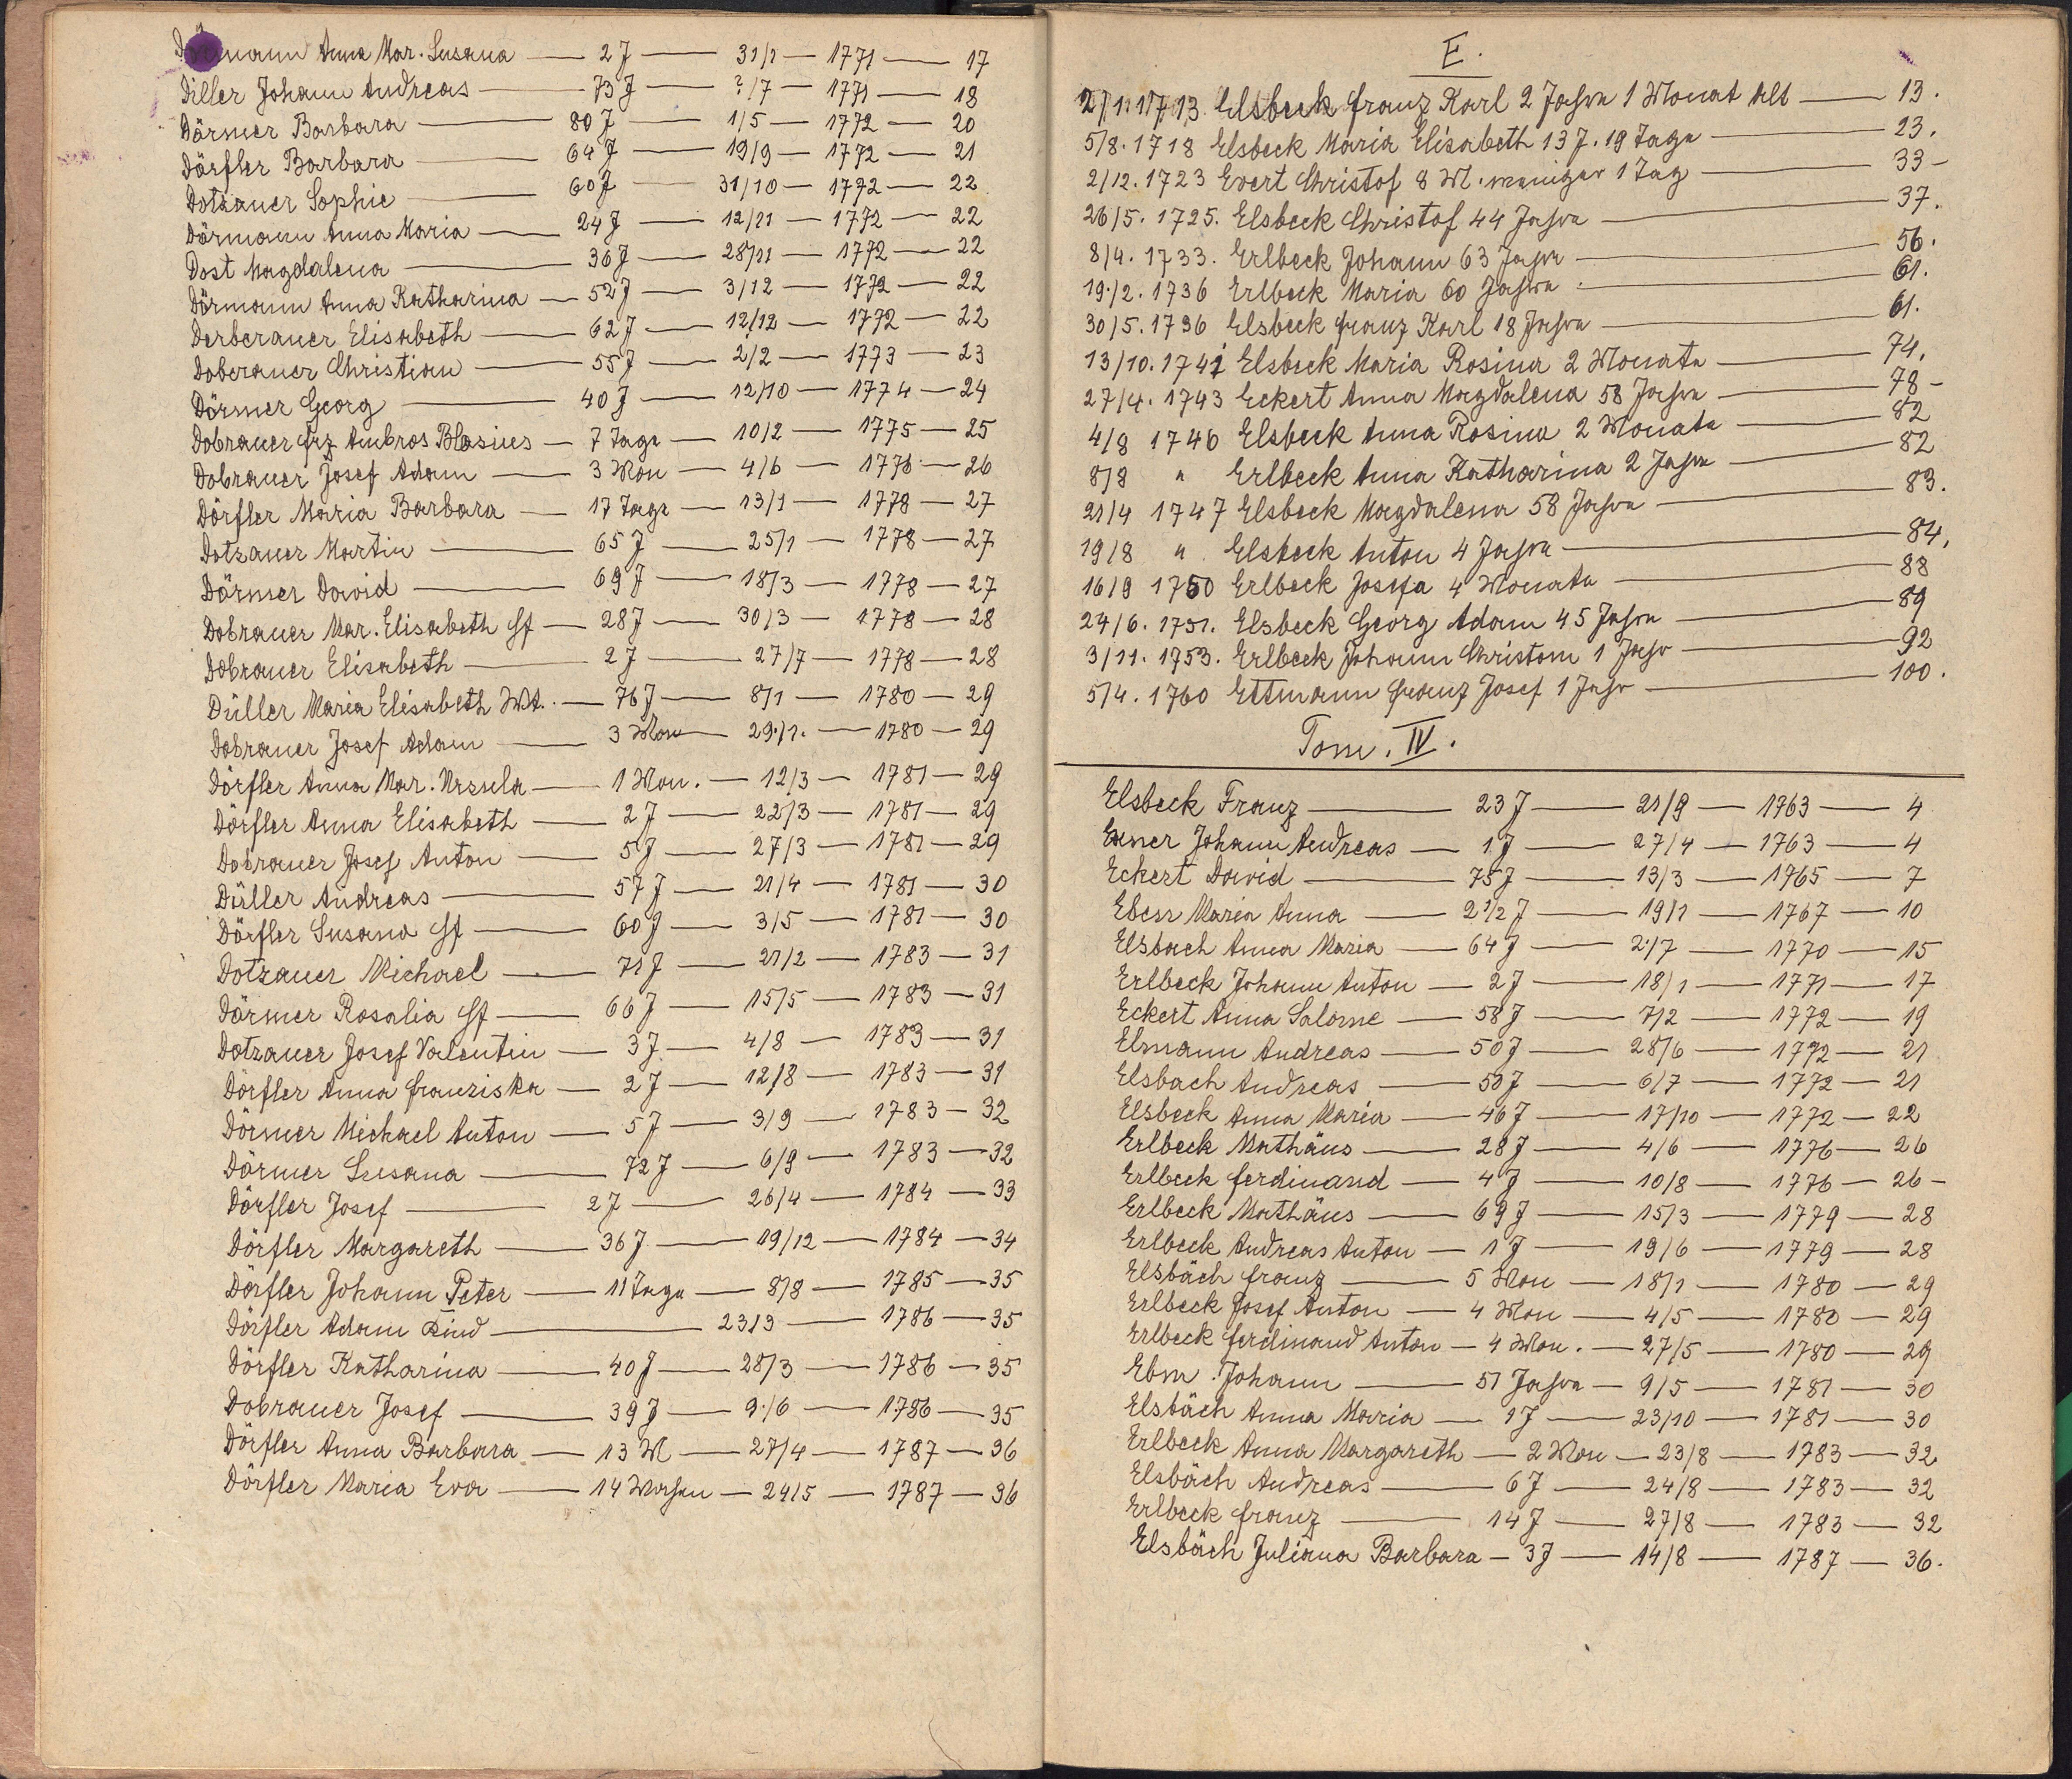 Dörmann Anna Mar. Susana — 2 J — 31/1 — 1771 — 17
Diller Johann Andreas — 73 J — ?/7 — 1771 — 18
Dörmer Barbara — 80 J — 1/5 — 1772 — 20
Dörfler Barbara — 64 J — 19/9 — 1772 — 21
Dotzauer Sophie — 60 J — 31/10 — 1772 — 22
Dörmann Anna Maria — 24 J — 12/11 — 1772 — 22
Dost Magdalena — 36 J — 28/11 — 1772 — 22
Dörmann Anna Katharina — 52 J — 3/12 — 1772 — 22
Derberauer Elisabeth — 62 J — 12/12 — 1772 — 22
Doberauer Christian — 55 J — 2/2 — 1773 — 23
Dörmer Georg — 40 J — 12/10 — 1774 — 24
Dobrauer frz Ambros Blasius — 7 Tage — 10/2 — 1775 — 25
Dobrauer Josef Adam — 3 Mon — 4/6 — 1776 — 26
Dörfler Maria Barbara — 17 Tage — 13/1 — 1778 — 27
Dotzauer Martin — 65 J — 25/1 — 1778 — 27
Dörmer David — 69 J — 18/3 — 1778 — 27
Dobrauer Mar. Elisabeth — 28 J — 30/3 — 1778 — 28
Dobrauer Elisabeth — 2 J — 27/7 — 1778 — 28
Düller Maria Elisabeth Wt. — 76 J — 8/1 — 1780 — 29
Dobrauer Josef Adam — 3 Mon — 29/1. — 1780 — 29
Dörfler Anna Mar. Ursula — 1 Mon. — 12/3 — 1781 — 29
Dörfler Anna Elisabeth — 2 J — 22/3 — 1781 — 29
Dobrauer Josef Anton — 5 J — 27/3 — 1781 — 29
Düller Andreas — 57 J — 21/4 — 1781 — 30
Dörfler Susana — 60 J — 3/5 — 1781 — 30
Dotzauer Michael — 71 J — 21/2 — 1783 — 31
Dörmer Rosalia — 66 J — 15/5 — 1783 — 31
Dotzauer Josef Valentin — 3 J — 4/8 — 1783 — 31
Dörfler Anna franziska — 2 J — 12/8 — 1783 — 31
Dörmer Michael Anton — 5 J — 3/9 — 1783 — 32
Dörmer Susana — 72 J — 6/9 — 1783 — 32
Dörfler Josef — 2 J — 26/4 — 1784 — 33
Dörfler Margareth — 36 J — 19/12 — 1784 — 34
Dörfler Johann Peter — 11 Tage — 8/8 — 1785 — 35
Dörfler Adam Kind — 23/3 — 1786 — 35
Dörfler Katharina — 40 J — 28/3 — 1786 — 35
Dobrauer Josef — 39 J — 9/6 — 1786 — 35
Dörfler Anna Barbara — 13 W — 27/4 — 1787 — 36
Dörfler Maria Eva — 14 Wochen — 24/5 — 1787 — 36
E.
2/1. 1713. Elsbeck franz Karl 2 Jahre 1 Monat alt — 13.
5/8. 1718 Elsbeck Maria Elisabeth 13 J. 19 Tage — 23.
2/12. 1723 Evert Christof 8 M. weniger 1 Tag — 33 -
26/5. 1725. Elsbeck Christof 44 Jahre — 37.
8/4. 1733. Erlbeck Johann 63 Jahre — 56.
19./2. 1736 Erlbeck Maria 60 Jahre — 61.
30/5. 1736 Elsbeck franz Karl 18 Jahre — 61.
13/10. 1741 Elsbeck Maria Rosina 2 Monate — 74.
27/4. 1743 Eckert Anna Magdalena 58 Jahre — 78 -
4/8 1746 Elsbeck Anna Rosina 2 Monate — 82
8/8 " Erlbeck Anna Katharina 2 Jahre — 82
21/4 1747 Elsbeck Magdalena 58 Jahre — 83.
19/8 " Elsbeck Anton 4 Jahre — 84.
16/9 1750 Erlbeck Josefa 4 Monate — 88
24/6. 1751. Elsbeck Georg Adam 45 Jahre — 89
3/11. 1753. Erlbeck Johann Christom 1 Jahr — 92
5/4. 1760 Ettmann franz Josef 1 Jahr — 100.
Tom. IV.
Elsbeck Franz — 23 J — 21/9 — 1763 — 4
Exner Johann Andreas — 1 J — 27/4 — 1763 — 4
Eckert David — 75 J — 13/3 — 1765 — 7
Ebesr Maria Anna — 2 1/2 J — 19/1 — 1767 — 10
Elsbach Anna Maria — 64 J — 2/7 — 1770 — 15
Erlbeck Johann Anton — 2 J — 18/1 — 1771 — 17
Eckert Anna Salome — 58 J — 7/2 — 1772 — 19
Elmann Andreas — 50 J — 28/6 — 1772 — 21
Elsbach Andreas — 50 J — 6/7 — 1772 — 21
Elsbeck Anna Maria — 46 J — 17/10 — 1772 — 22
Erlbeck Mathäus — 28 J — 4/6 — 1776 — 26
Erlbeck ferdinand — 4 J — 10/8 — 1776 — 26 -
Erlbeck Mathäus — 69 J — 15/3 — 1779 — 28
Erlbeck Andreas Anton — 1 J — 19/6 — 1779 — 28
Elsbäch franz — 5 Mon — 18/1 — 1780 — 29
Erlbeck Josef Anton — 4 Mon — 4/5 — 1780 — 29
Erlbeck ferdinand Anton — 4 Mon. — 27/5 — 1780 — 29
Ebm. Johann — 51 Jahre — 9/5 — 1781 — 30
Elsbäch Anna Maria — 1 J — 23/10 — 1781 — 30
Erlbeck Anna Margareth — 2 Mon — 23/8 — 1783 — 32
Elsbäch Andreas — 6 J — 24/8 — 1783 — 32
Erlbeck franz — 14 J — 27/8 — 1783 — 32
Elsbäch Juliana Barbara — 3 J — 14/8 — 1787 — 36.